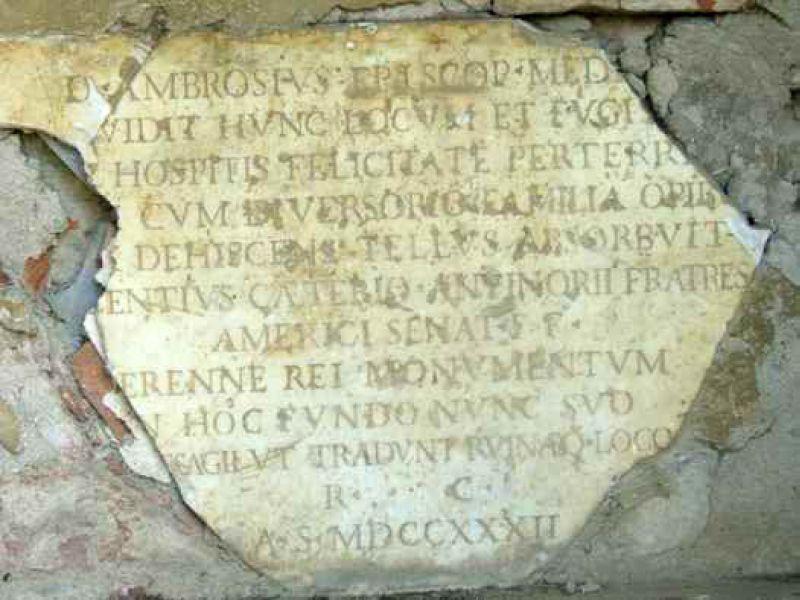 D·AMBROSIVS·EPISCOP·MED
VIDIT HVNC LOCVM ET FVGI
HOSPITIS FELICITATE PERTERR
CVM DIVERSORIO FAMILIA OPIB
S DEHISCENS TELLVS ABSORBVIT
ENTIVS CAETERIQ·ANTINORII FRATRES
AMERICI SENAT·F·
ERENNE REI MONVMENTVM
N HOC FVNDO NVNC SVO
AGIL VT TRADVNT RVINAEQ·LOCO
R· · · C·
A·S·MDCCXXXII